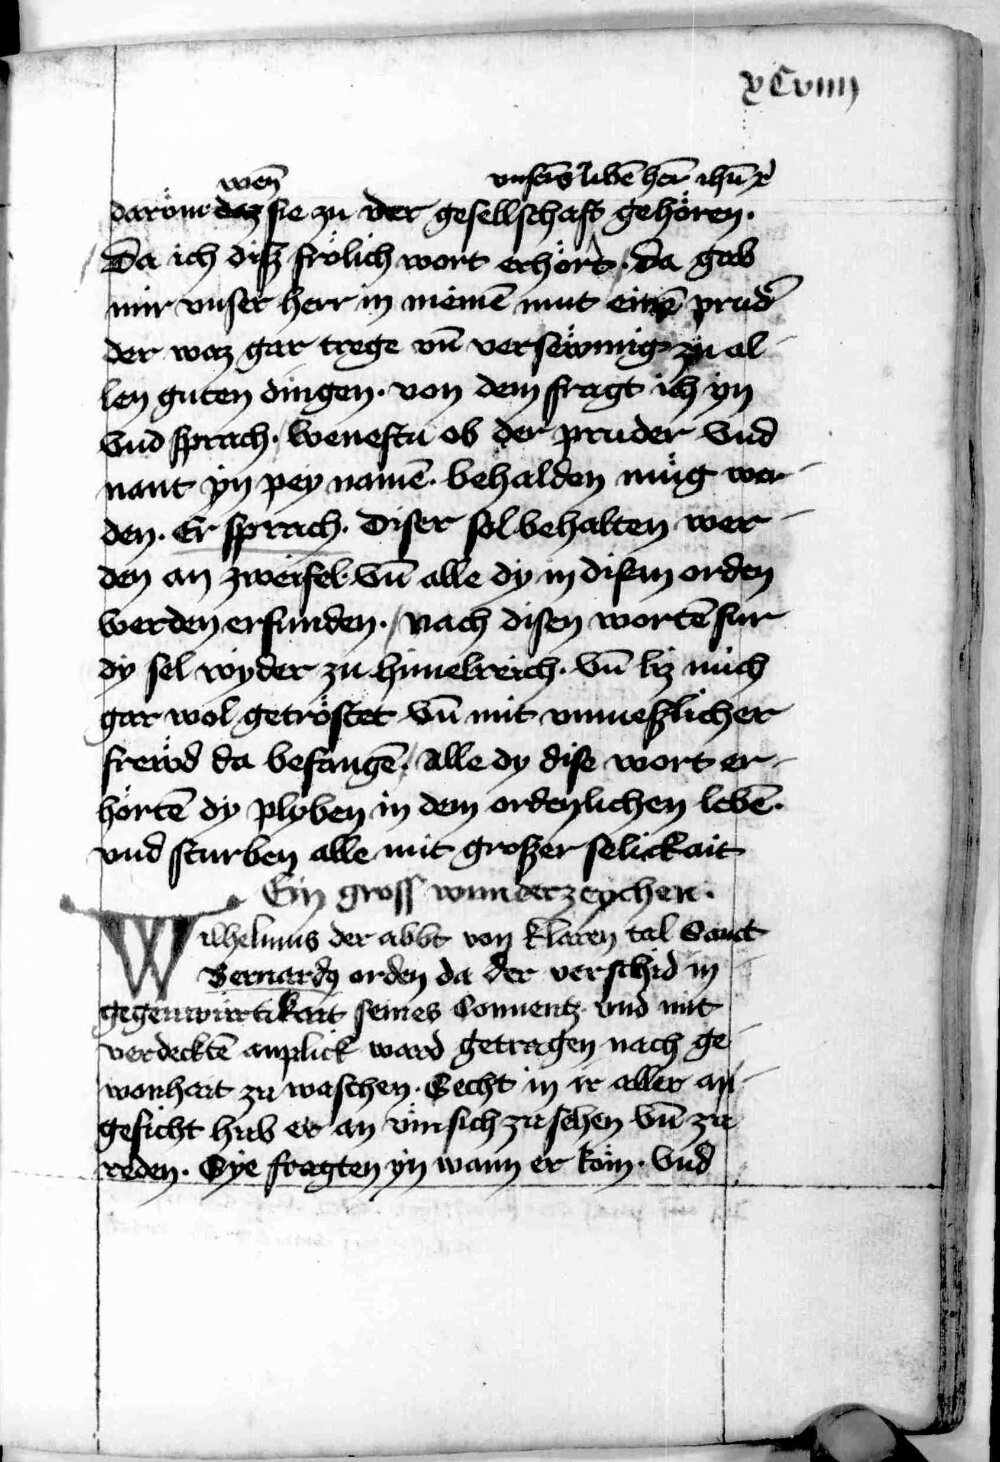 xCviiij
wen̄ vnsers libē herr̄ ihū xͥ
darömr daz sie zu der gesellschaft gehören.
Da ich disz frölich wort erhört. Da gab
mir vnser herr in meinē mut einē prud̄
der waz gar trege vn̄ versewmig zu al
len guten dingen. von dem fragt ich yn
vnd sprach. wenestu ob der pruder vnd
nant yn pey namē. behalden müg wer
den. Er sprach. Diser sol behalten wer
den an zweifel. vn̄ alle dy in disem orden
werden erfunden. Nach disen wortē fur
dy sel wyder zu himelreich. vn̄ liz mich
gar wol getröstet vn̄ mit vnmeßlicher
frewd da befangē. Alle dy dise wort er
hörtē dy plyben in dem ordenlichen lebē.
vnd sturben alle mit großer selickait
Ein gross wunderzeychen.
Wilhelmus der abbt von klaren tal Sanct
Bernardy orden da der verschid in
gegenwürtikait seines Conuentz. vnd mit
verdecktē anplick ward getragen nach ge
wonhait zu waschen. Secht in ir aller an
gesicht hub er an vm̄ sich zu sehen vn̄ zu
reden. Sye fragten yn wann er köm. vnd